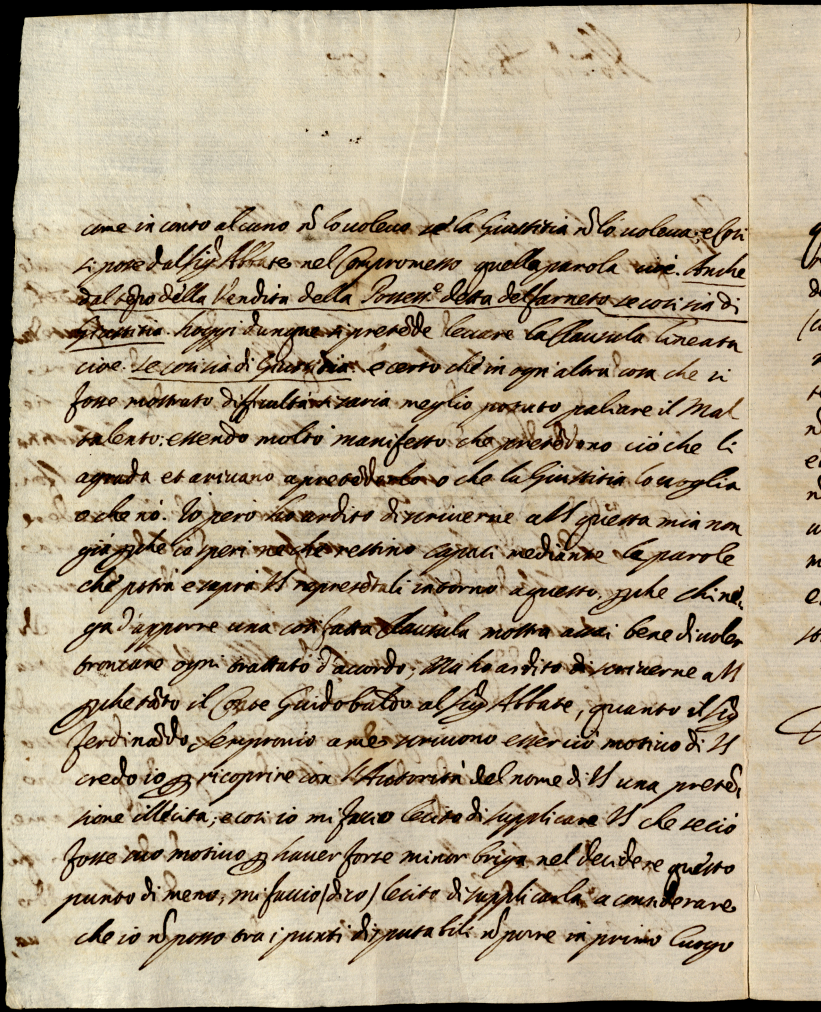 come in conto alcuno nõ lo voleva se la Giustitia nõ lo voleva; e così
si pose dal Sig.r Abbate nel Compromesso quella parola cioè. Anche
dal tẽpo della Vendita della Possess.e detta del farneto se così sia di
Giustitia. hoggi dunque si pretẽde levare la Clausula lineata
cioè. se così sia di Giustitia. e certo che in ogn'altra cosa che si
fosse mostrato difficultà si saria meglio potuto paliare il Mal
talento: essendo molto manifesto che pretẽdono ciò che li
agrada et arivano a pretẽderlo o che la Giustitia lo voglia
o che nò. Io però ho ardito di scriverne a VS questa mia non
già ꝑche io speri ne che restino capaci mediante le parole
che potrà e saprà VS represẽtali intorno a questo. ꝑche chi ne-
ga d'apporre una così fatta Clausula mostra assai bene di voler
troncare ogni trattato d'accordo; Ma ho ardito di scriverne a VS
ꝑche tãto il Conte Guidobaldo al Sig.r Abbate, quanto il Sig.r
Ferdinãdo Sempronio a me scrivono esser ciò motivo di VS
credo io ꝑ ricoprire con l'Autorità del nome di VS una pretẽ-
sione illecita; e così io mi faccio lecito di supplicare VS che se ciò
fosse suo motivo ꝑ haver forse minor briga nel decidere questo
punto di meno, mi faccio (dico) lecito di supplicarla a considerare
che io nõ posso tra i punti disputabili nõ porre in primo luogo